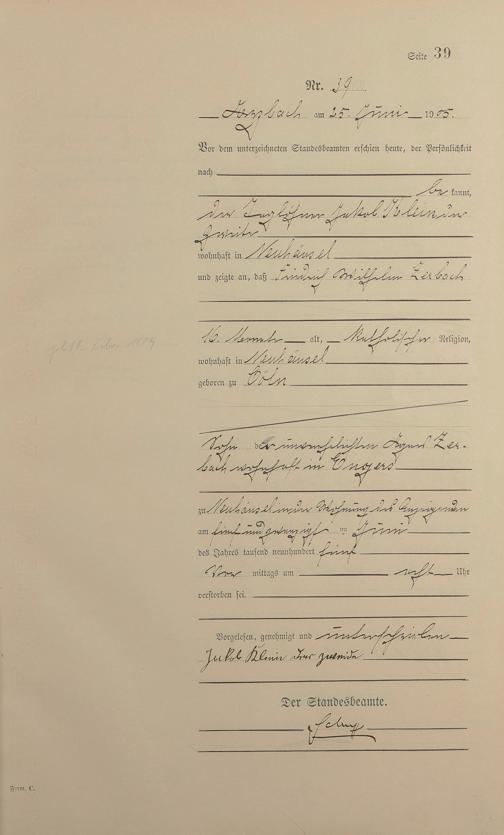 Seite 39
Nr. 39
am 25. Juni 1905.
Vor dem unterzeichneten Standesbeamten erschien heute, der Persönlichkeit
nach
be kannt,
der Taglöhner Jakob Klein der
Zweite
wohnhaft in Neuhäusel
und zeigte an, daß Wilhelm Zerbach
16. Monate alt, katholischer Religion,
wohnhaft in Neuhäusel
geboren zu Cöln
Sohn der unverehelichten Zer-
bach wohnhaft in Engers
zu Neuhäusel in der Wohnung des Anzeigenden
am fünf und zwanzigsten Juni
des Jahres tausend neunhundert fünf
Vor mittags um acht Uhr
verstorben sei.
Vorgelesen, genehmigt und unterschrieben
Jakob Klein der zweite
Der Standesbeamte.
Form. C.